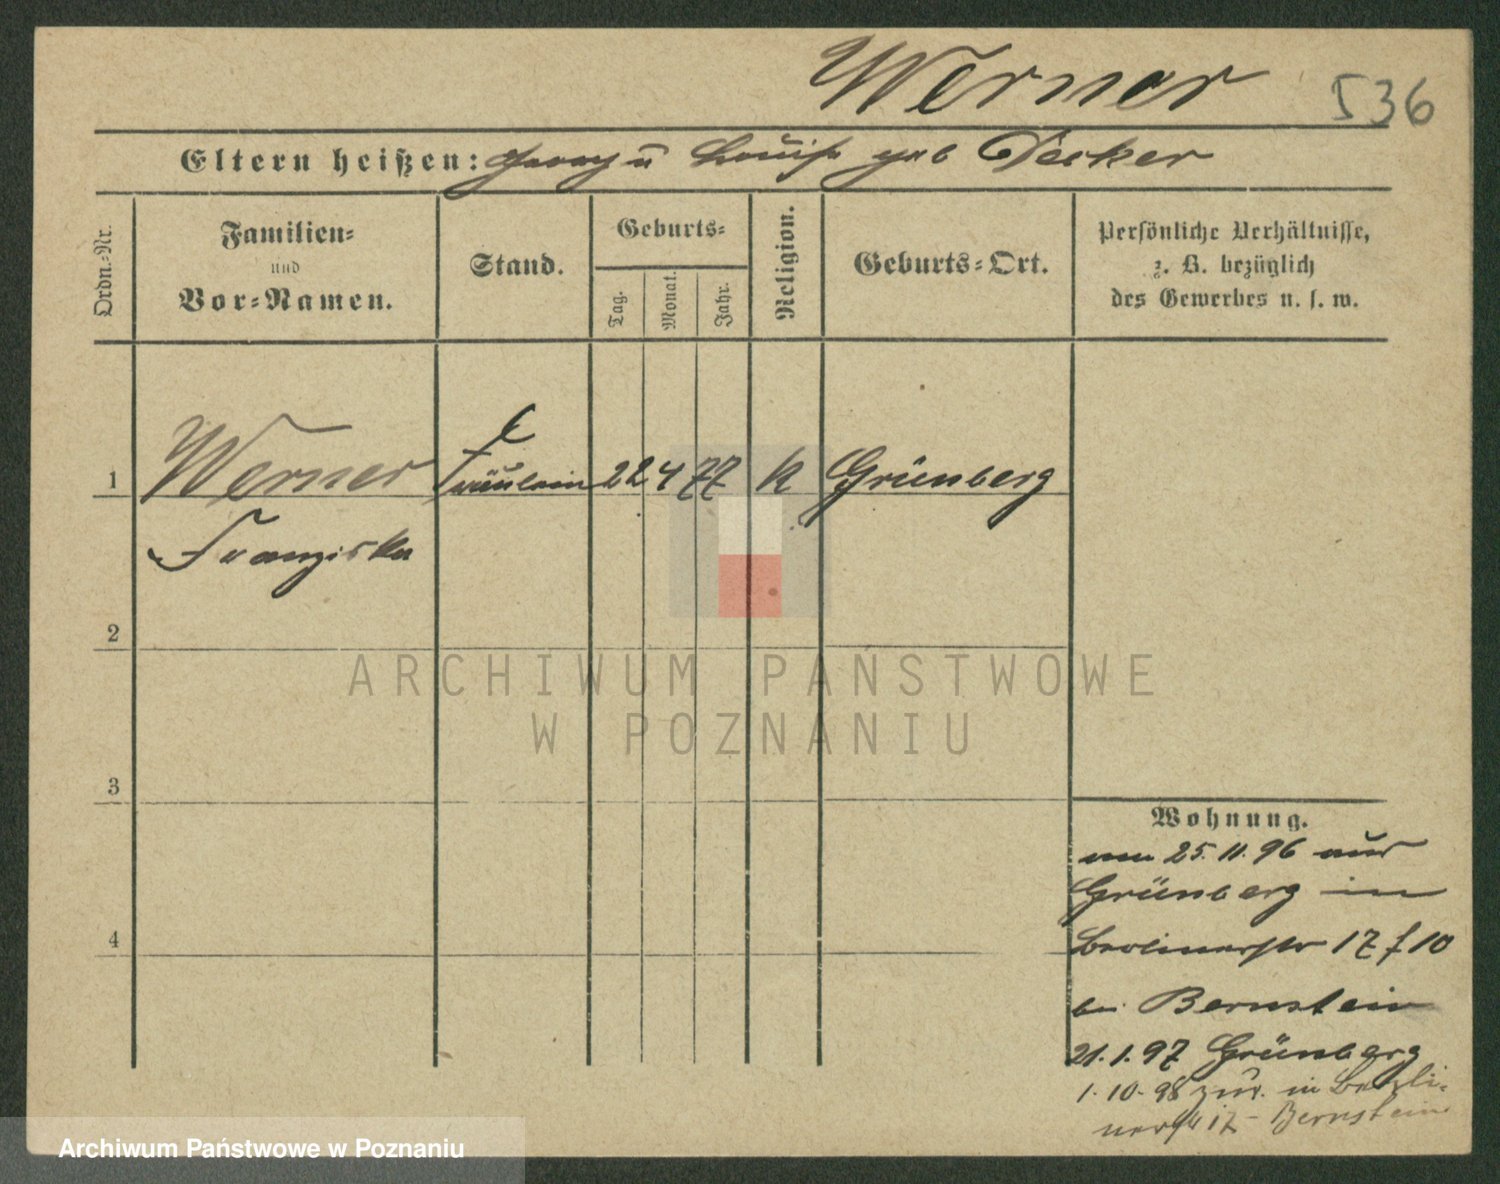 Werner 536
Eltern heißen: Georg u Louise geb Decker
Ordn.-Nr.
Familien-
und
Vor-Namen.
Stand.
Geburts-
Tag.
Monat.
Jahr.
Religion.
Geburts-Ort.
Persönliche Verhältnisse,
z. B. bezüglich
des Gewerbes u. s. w.
1 Werner Fräulein 22 4 77 k Grünberg
Franziska
2
3
4
Wohnung.
25. 11. 96 aus
Grünberg in
Berlinerstr 17 f 10
bei Bernstein
21. 1. 97 Grünberg
1. 10. 98 zur. in Berli-
nerstr 17 - Bernstein
ARCHIWUM PAŃSTWOWE
W POZNANIU
Archiwum Państwowe w Poznaniu